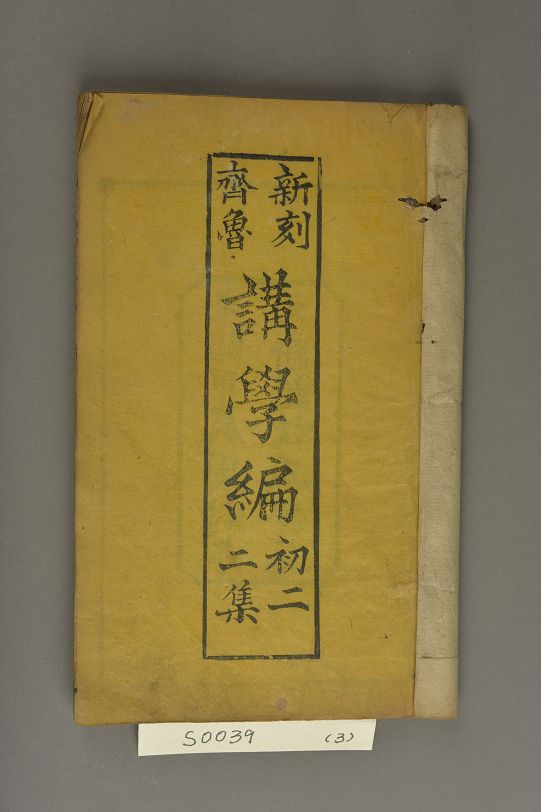 新刻
齊魯
講學編
初二
二集
S0039 (3)